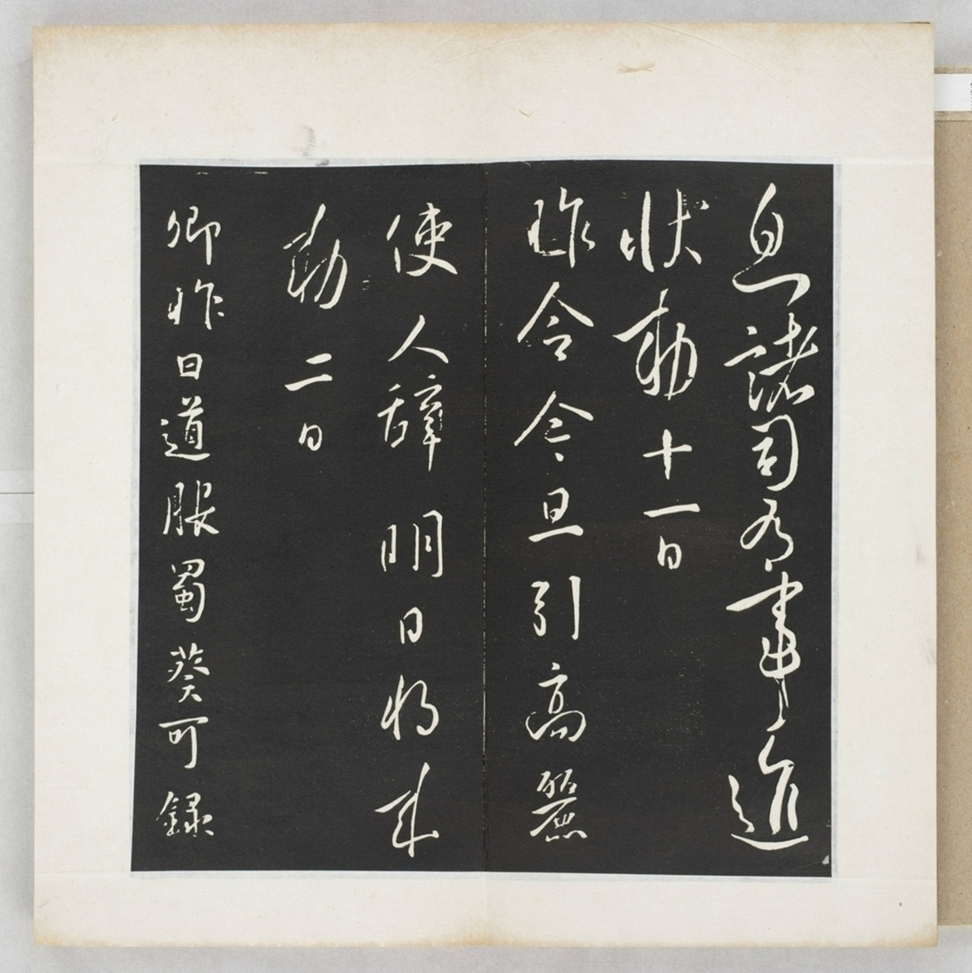 息諸司有事進
狀勅十一日
昨令今旦引高麗
使人辭明日將來
勅二日
卿昨日道服蜀葵可錄